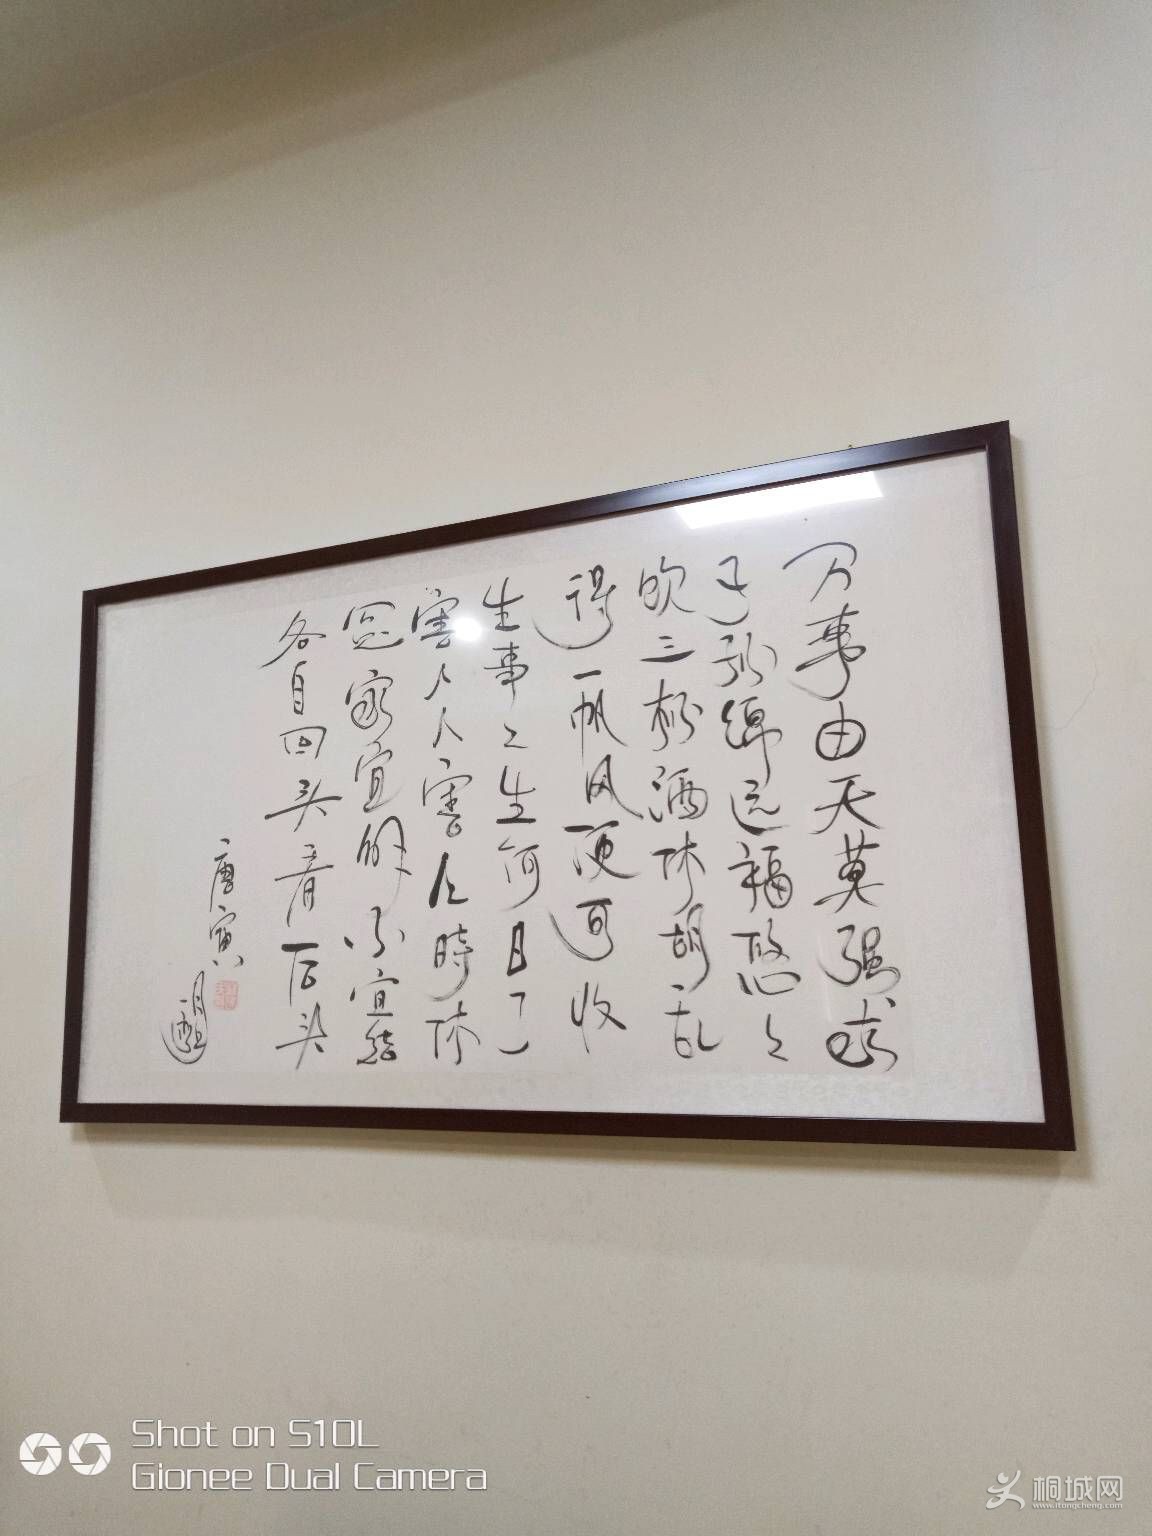 万事由天莫强求
子孙绵远福悠々
饮三杯酒休胡乱
得一帆风便可收
生事々生何日了
害人人害几時休
冤家宜解不宜结
各自回头看后头
唐寅
Shot on S10L
Gionee Dual Camera
桐城网
www.itongcheng.com